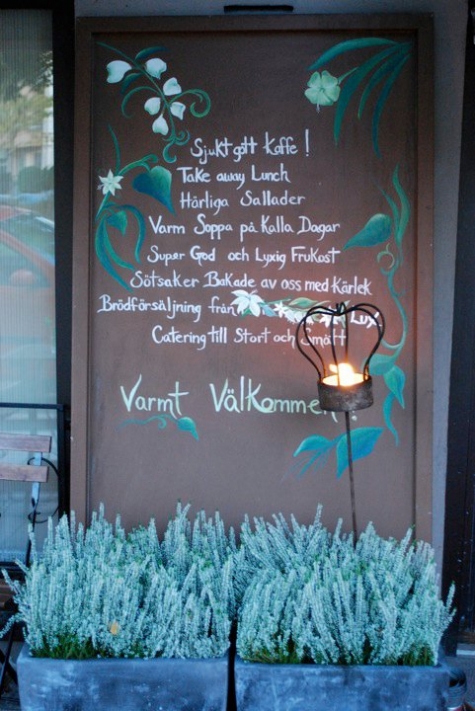 Sjukt gott kaffe !
Take away Lunch
Härliga Sallader
Varm Soppa på Kalla Dagar
Super God och Lyxig Frukost
Sötsaker Bakade av oss med Kärlek
Brödförsäljning från Lux!
Catering till Stort och Smått
Varmt Välkommen